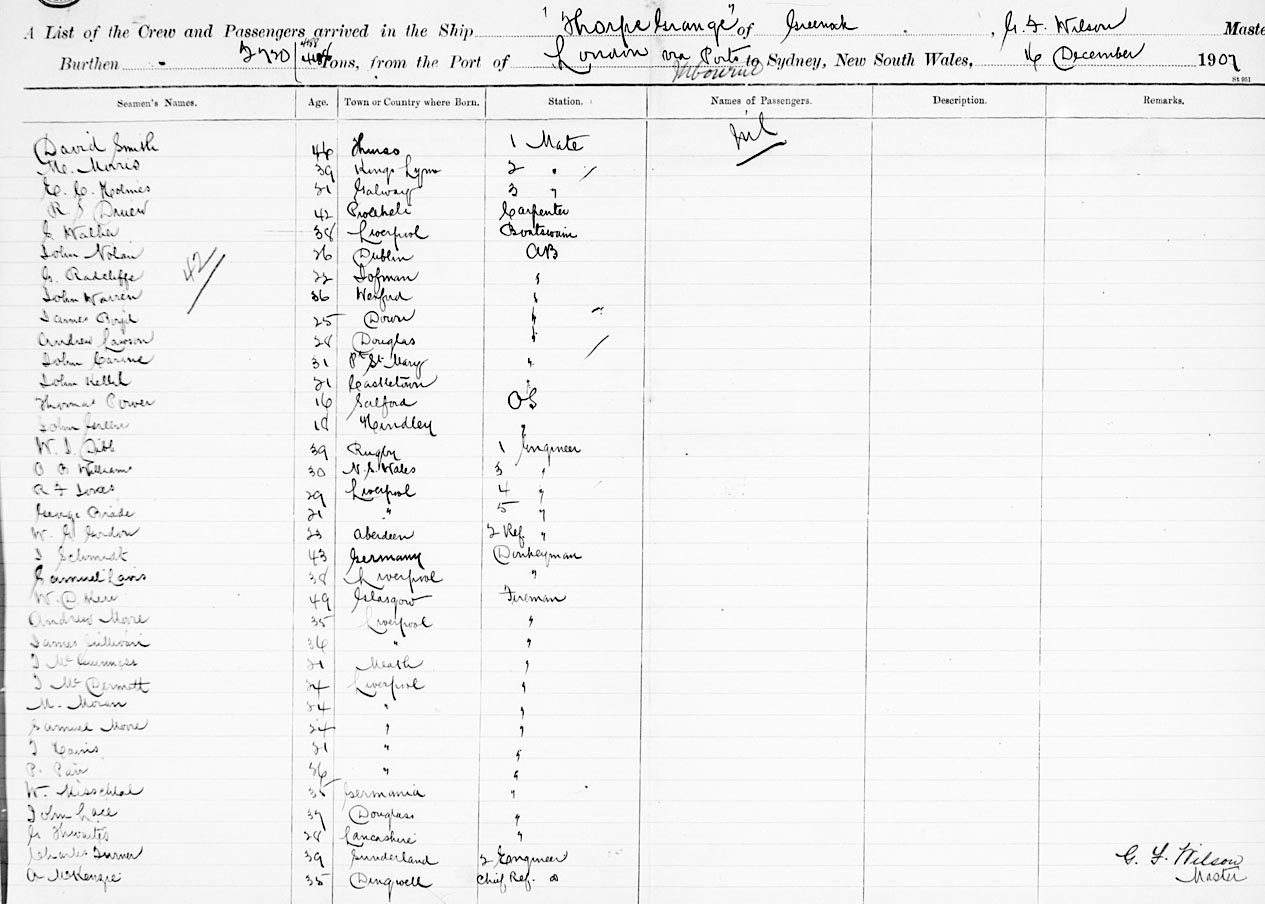 A List of the Crew and Passengers arrived in the Ship "Thorpe Grange" of Greenock, G. F. Wilson Maste
Burthen 2730 Tons, from the Port of London via Ports to Sydney, New South Wales, 16 December 1907
Melbourne
St 951
Seamen's Names. Age. Town or Country where Born. Station. Names of Passengers. Description. Remarks.
Nil
David Smith 46 Thurso 1 Mate
M. Morris 39 Kings Lynn 2 "
E. C. Holmes 21 Galway 3 "
R J 42 Pwllheli Carpenter
G Walker 38 Liverpool Boatswain
John Nolan 26 Dublin AB
G. Radcliffe 22 Iofman "
42
John Warren 36 Wexford "
James Boyd 25 Down "
Andrew Lawson 28 Douglas "
John Carine 31 Pt St Mary "
John 21 Castletown "
Thomas Power 16 Salford OS
John Green 18 Hindley "
W. J. Dibb 39 Rugby 1 Engineer
O B Williams 30 N.S. Wales 3 "
R F Jones 29 Liverpool 4 "
George 21 " 5 "
W. G Gordon 23 Aberdeen 2 Ref. "
J Schmidt 43 Germany Donkeyman
Samuel Lavis 38 Liverpool "
W. D Kerr 49 Glasgow Fireman
Andrew Moore 35 Liverpool "
James Sullivan 36 " "
J McGuinness 21 Meath "
J McDermott 24 Liverpool "
M. Moran 24 " "
Samuel Moore 24 " "
J Harris 21 " "
P. Pair 36 " "
W. 35 Germania "
John Lace 37 Douglas "
G Thwaites 28 Lancashire "
Charles Turner 39 Sunderland 2 Engineer
A McKenzie 35 Dingwell Chief Ref. do
G. F. Wilson
Master